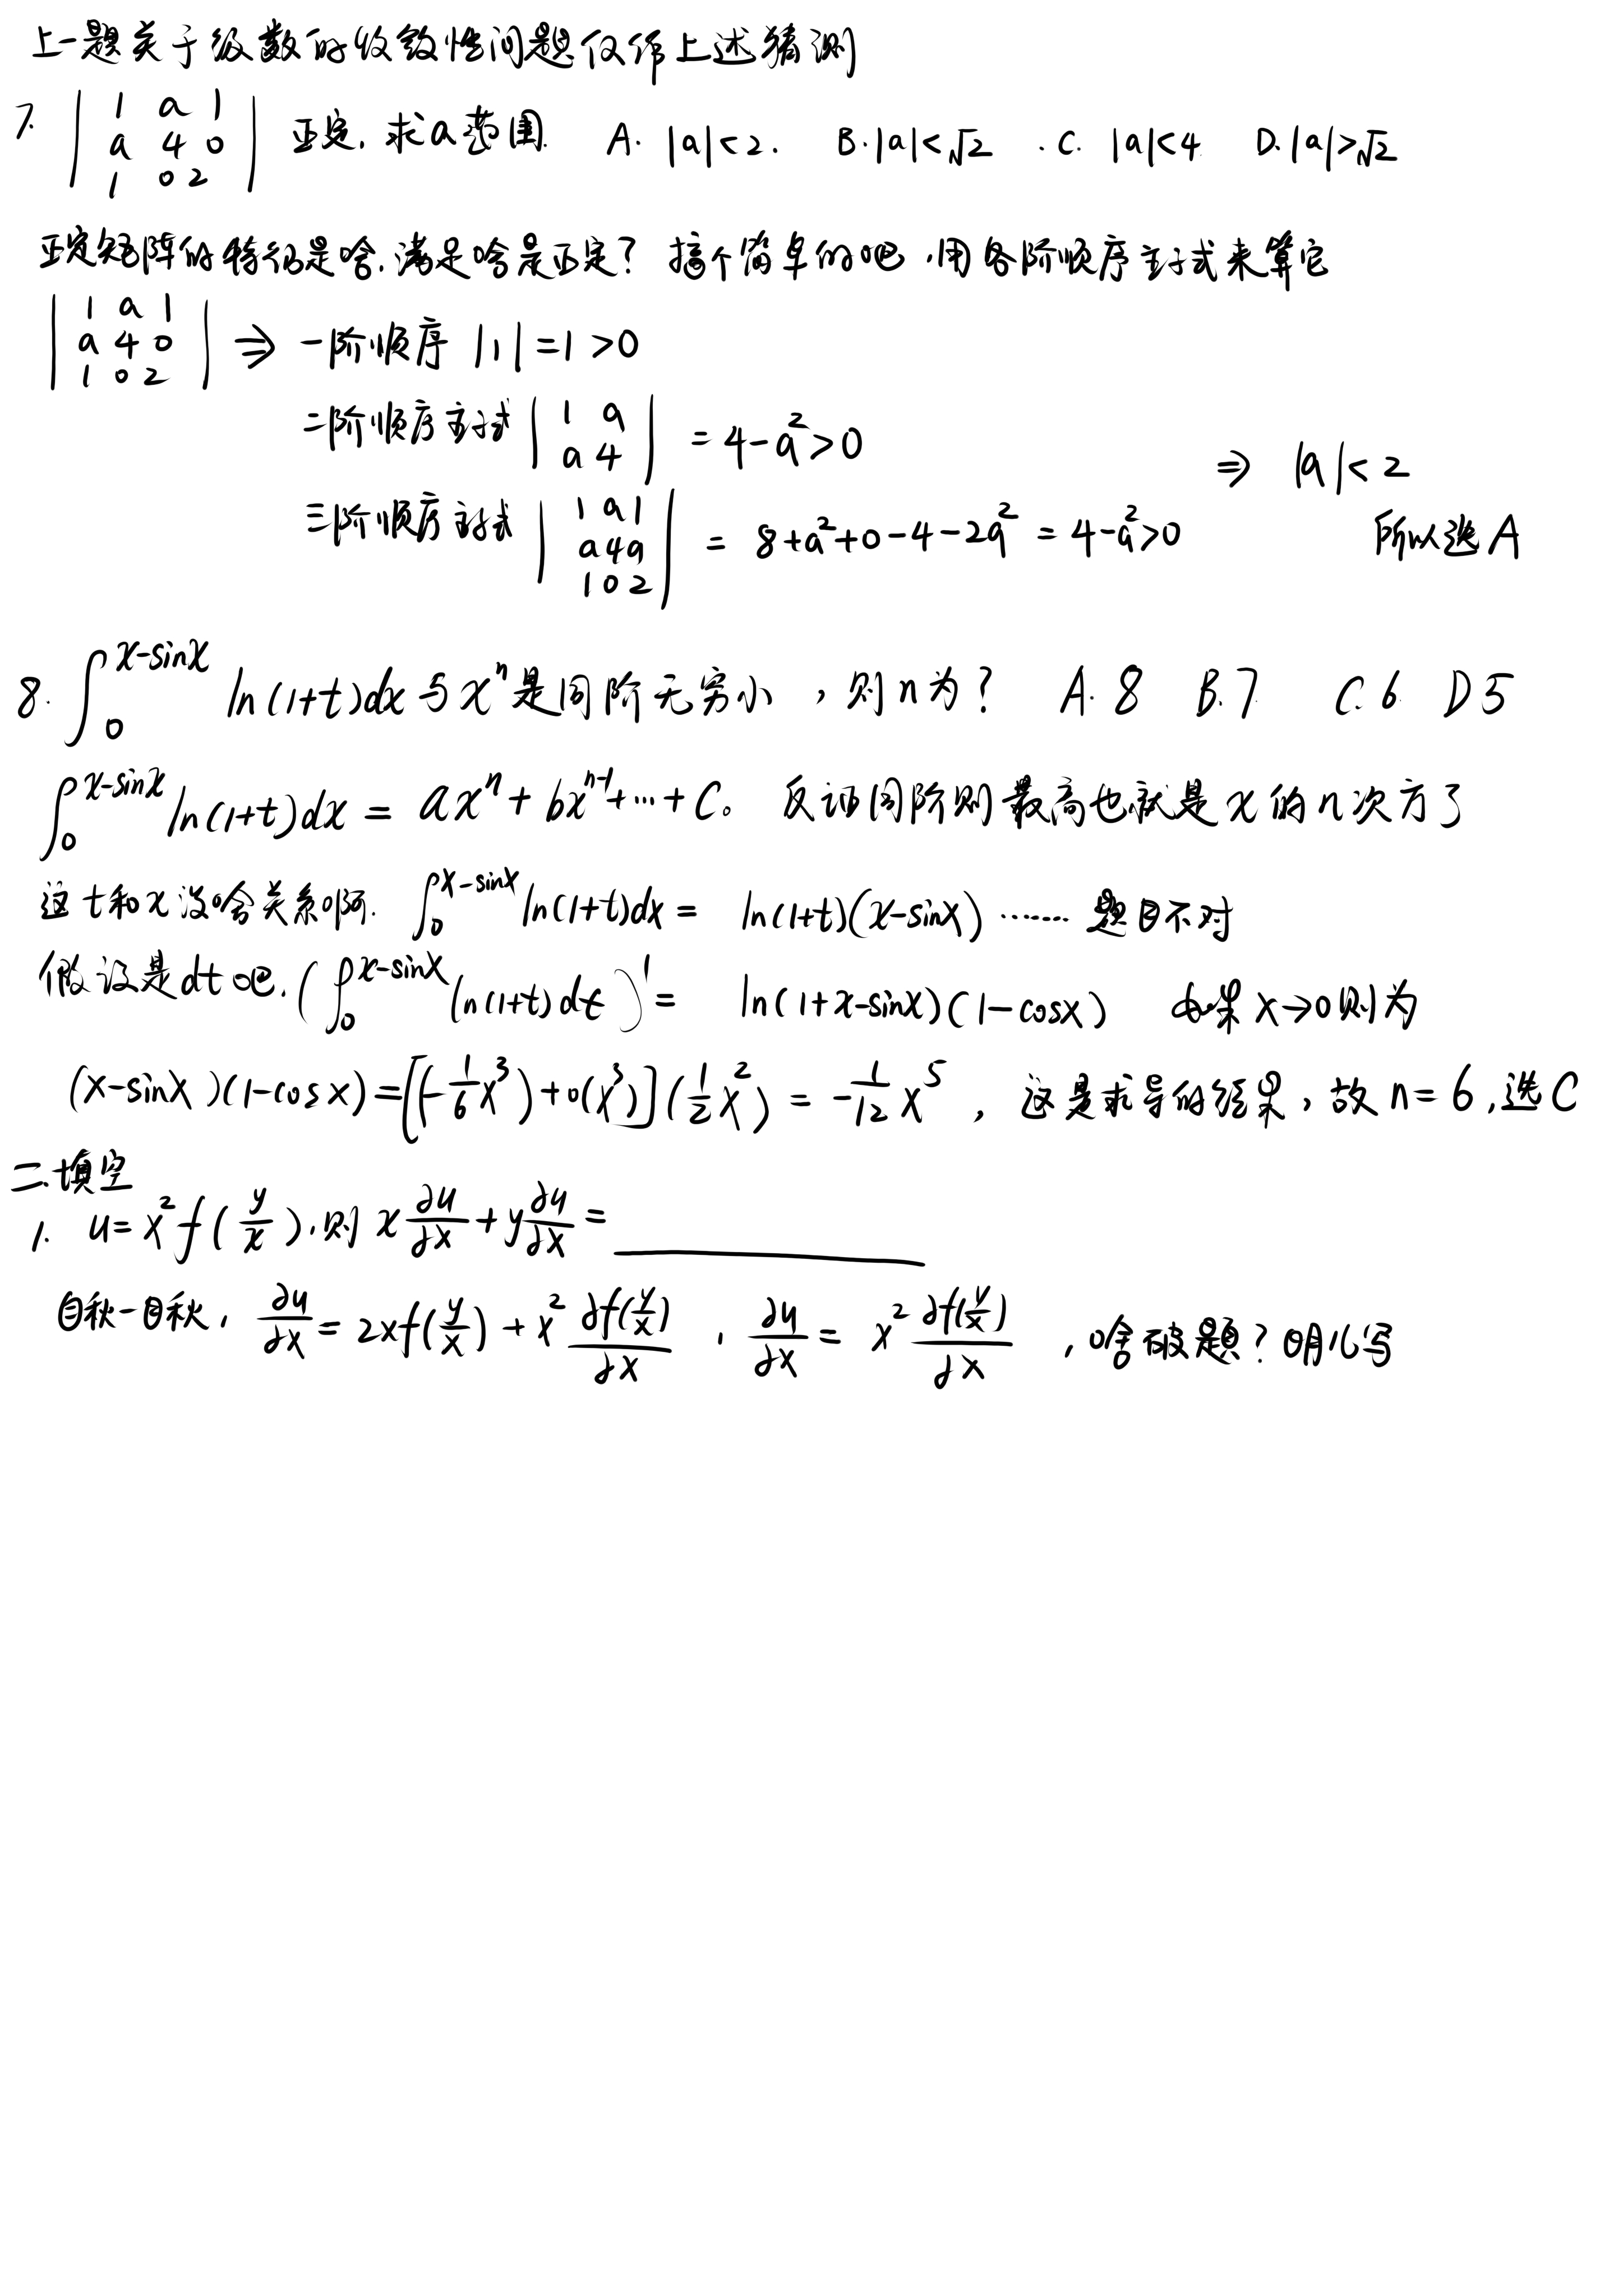 上一题关于级数的收敛性问题仅作上述猜测
7. | 1 a 1 | 正定. 求a范围. A. |a|<2. B.|a|<√2 . C. |a|<4. D.|a|>√2
| a 4 0 |
| 1 0 2 |
正定矩阵的特征是啥.满足啥是正定? 搞个简单的吧,用各阶顺序主子式来算它
| 1 a 1 |
| a 4 0 | ⇒ 一阶顺序 |1| = 1 > 0
| 1 0 2 |
二阶顺序主子式 | 1 a ; a 4 | = 4-a² > 0 ⇒ |a| < 2
三阶顺序主子式 | 1 a 1 ; a 4 a ; 1 0 2 | = 8+a²+0-4-2a² = 4-a²>0 所以选A
8. ∫₀^(x-sinx) ln(1+t)dx 与 xⁿ 是同阶无穷小 , 则 n 为? A. 8 B.7. C. 6. D 5
∫₀^(x-sinx) ln(1+t)dx = axⁿ + bxⁿ⁻¹+…+C。 反证同阶则最高也就是x的n次方了
这t和x没啥关系啊. ∫₀^(x-sinx) ln(1+t)dx = ln(1+t)(x-sinx) …… 题目不对
假设是dt吧. (∫₀^(x-sinx) ln(1+t)dt)' = ln(1+x-sinx)(1-cosx) 如果x→0则为
(x-sinx)(1-cosx) = [(-1/6 x³)+o(x³)](1/2 x²) = -1/12 x⁵ , 这是求导的结果,故n=6,选C
二.填空
1. u= x²f(y/x).则 x ∂u/∂x + y ∂u/∂x = ______
目秋一目秋, ∂u/∂x = 2xf(y/x) + x² ∂f(y/x)/∂x , ∂u/∂x = x² ∂f(y/x)/∂x ,啥破题?明儿写